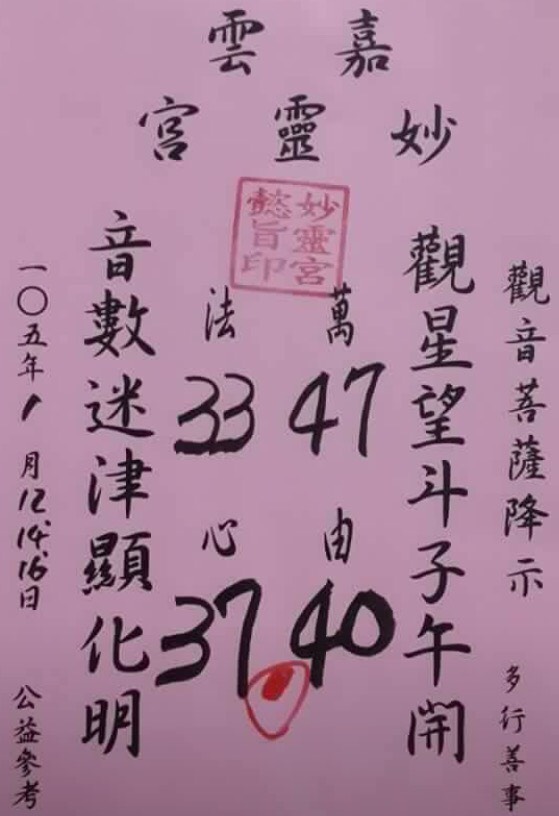 嘉雲
妙靈宮
妙靈宮懿旨印
觀音菩薩降示 多行善事
觀星望斗子午開
萬法由心
47 33
40 37
音數迷津顯化明
一〇五年1月12、14、16日 公益參考